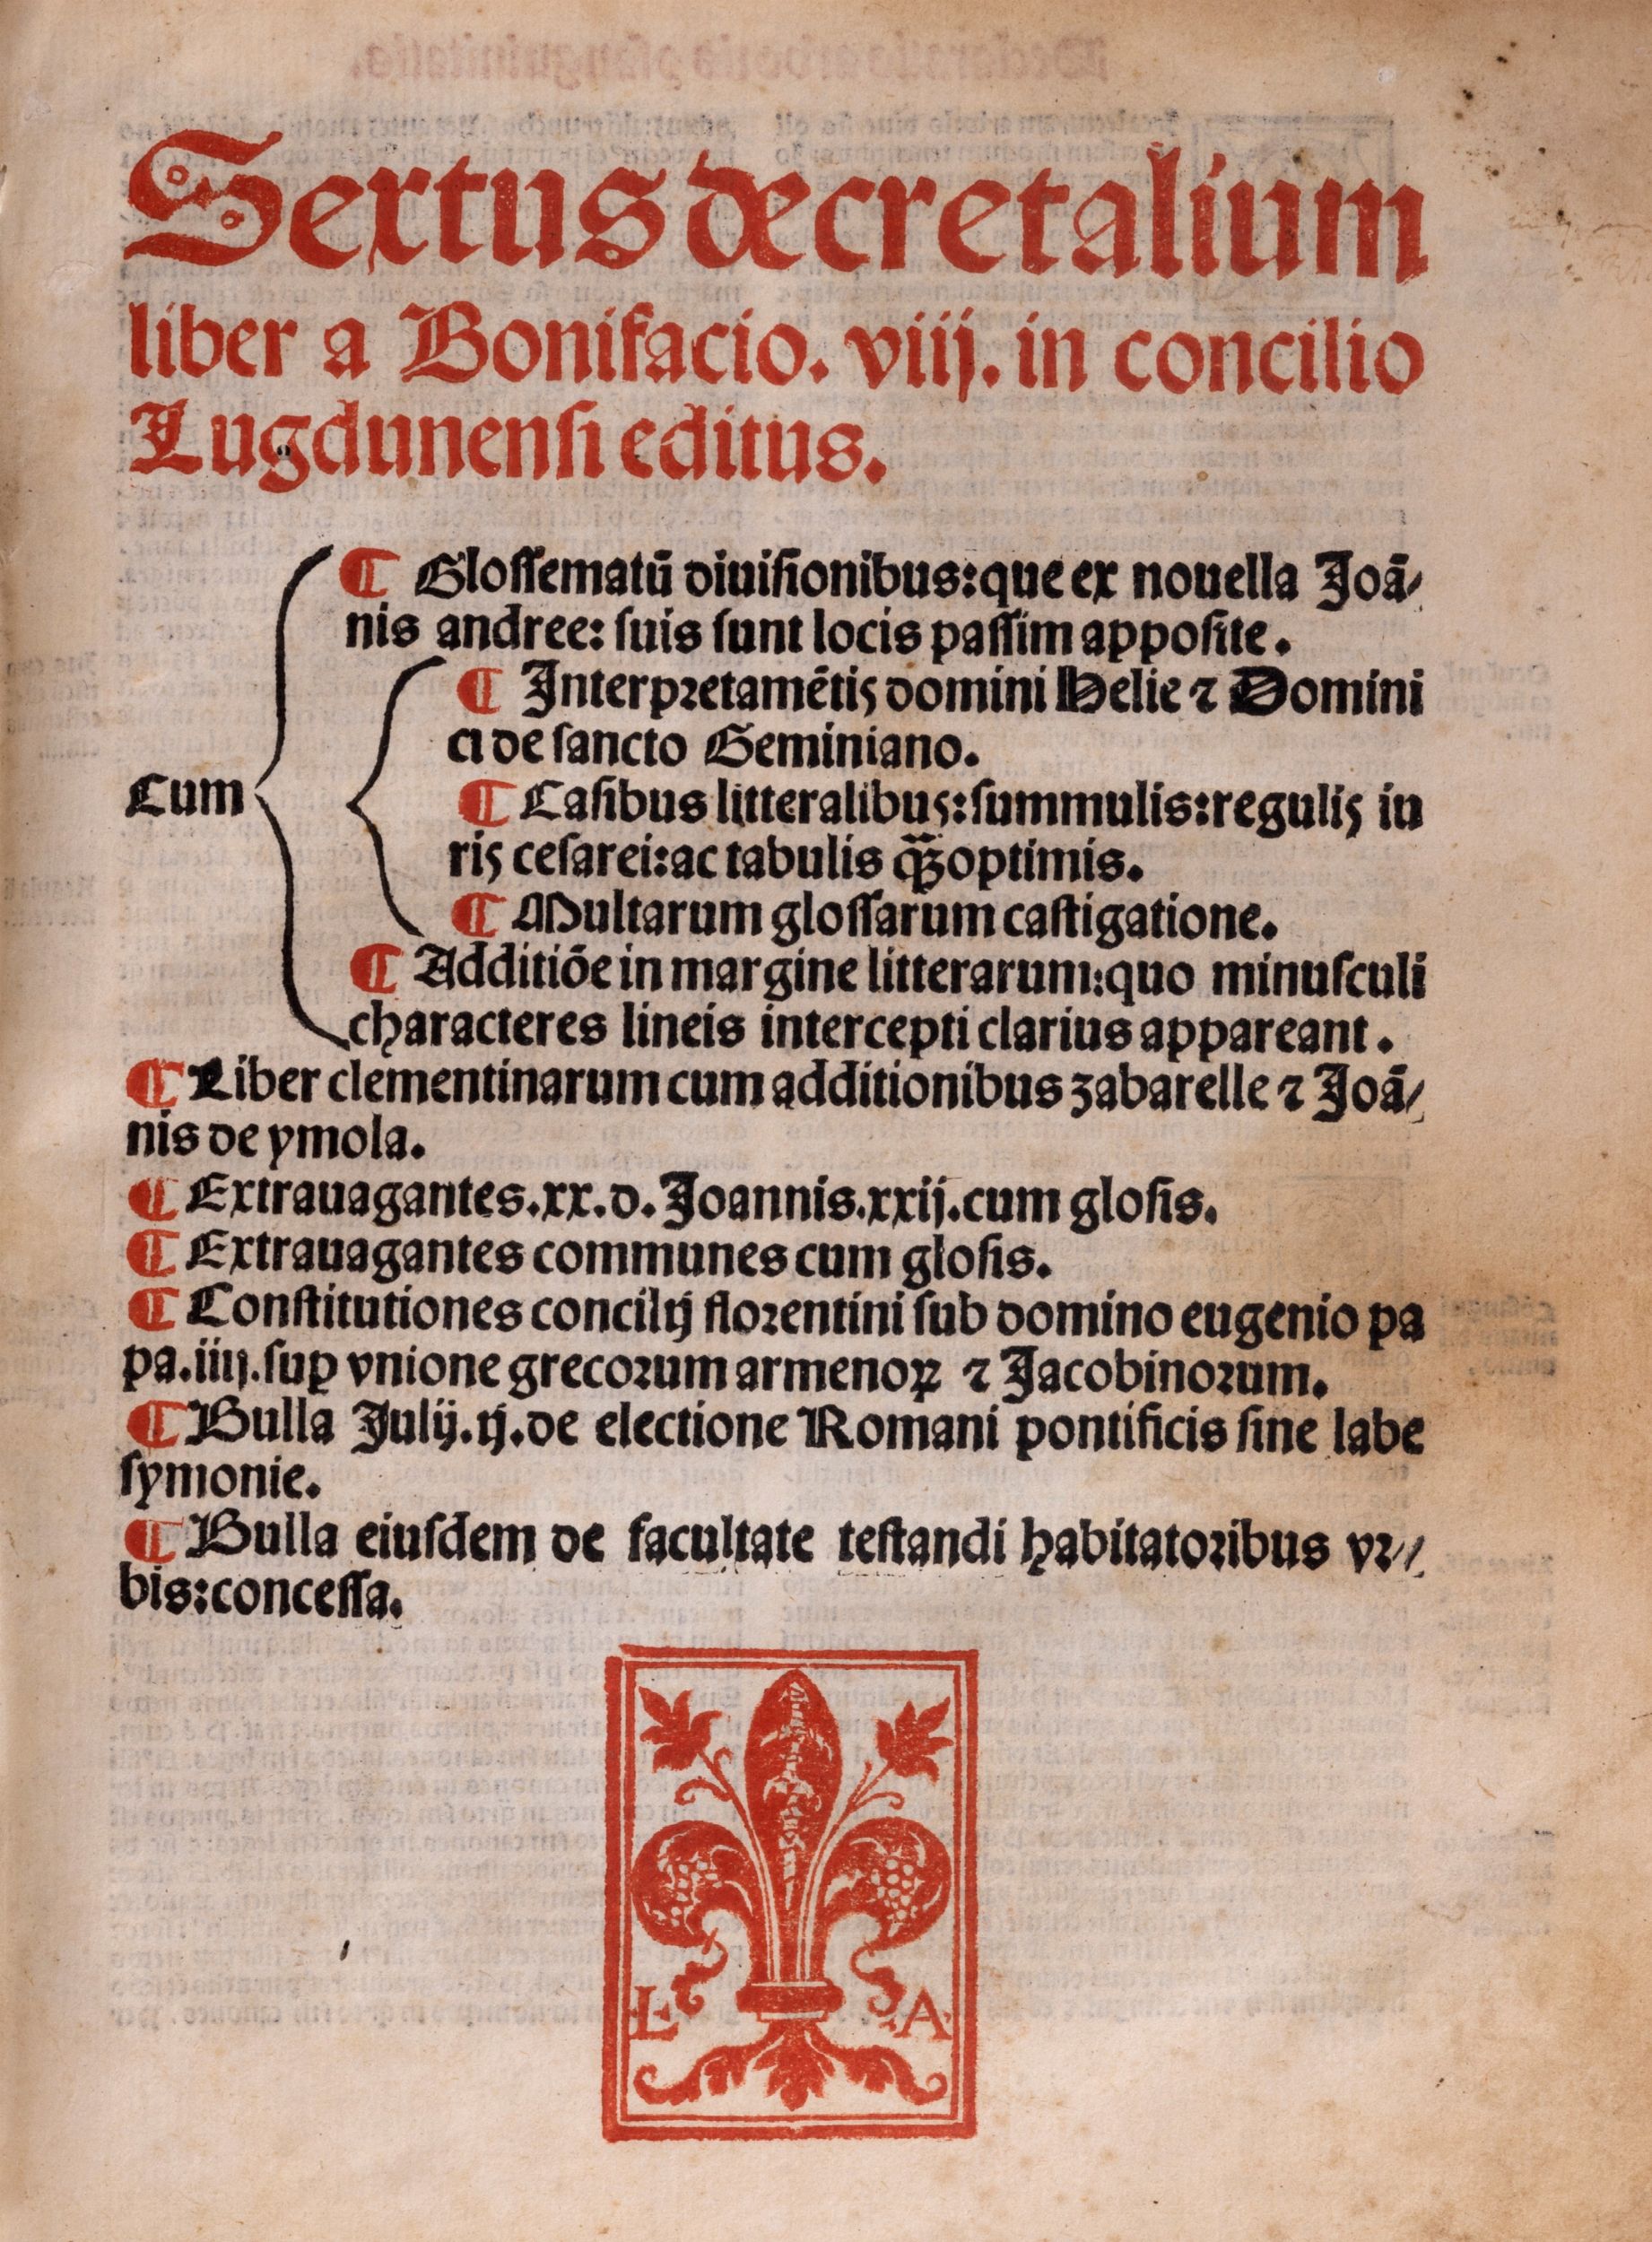 Sextus decretalium
liber a Bonifacio. viij. in concilio
Lugdunenſi editus.
¶ Gloſſematū diuiſionibus: que ex nouella Joā⸗
nis andree: ſuis ſunt locis paſſim appoſite.
¶ Interpretamētis domini Helie ⁊ Domini
ci de ſancto Geminiano.
Cum
¶ Caſibus litteralibus: ſummulis: regulis iu
ris ceſarei: ac tabulis q̄ꝫ optimis.
¶ Multarum gloſſarum caſtigatione.
¶ Additiōe in margine litterarum: quo minuſculi
characteres lineis intercepti clarius appareant.
¶ Liber clementinarum cum additionibus zabarelle ⁊ Joā⸗
nis de ymola.
¶ Extrauagantes. xx. d. Joannis. xxij. cum gloſis.
¶ Extrauagantes communes cum gloſis.
¶ Conſtitutiones concilij florentini ſub domino eugenio pa
pa. iiij. ſuꝑ vnione grecorum armenoꝝ ⁊ Jacobinorum.
¶ Bulla Julij. ij. de electione Romani pontificis ſine labe
ſymonie.
¶ Bulla eiuſdem de facultate teſtandi habitatoribus vr⸗
bis: conceſſa.
L A